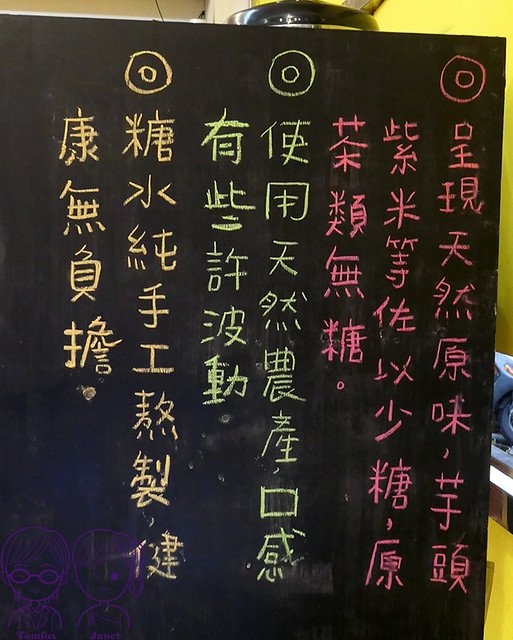 ◎呈現天然原味，芋頭
紫米等佐以少糖，原
茶類無糖。
◎使用天然農產，口感
有些許波動。
◎糖水純手工熬製，健
康無負擔。
Tomfox Janet